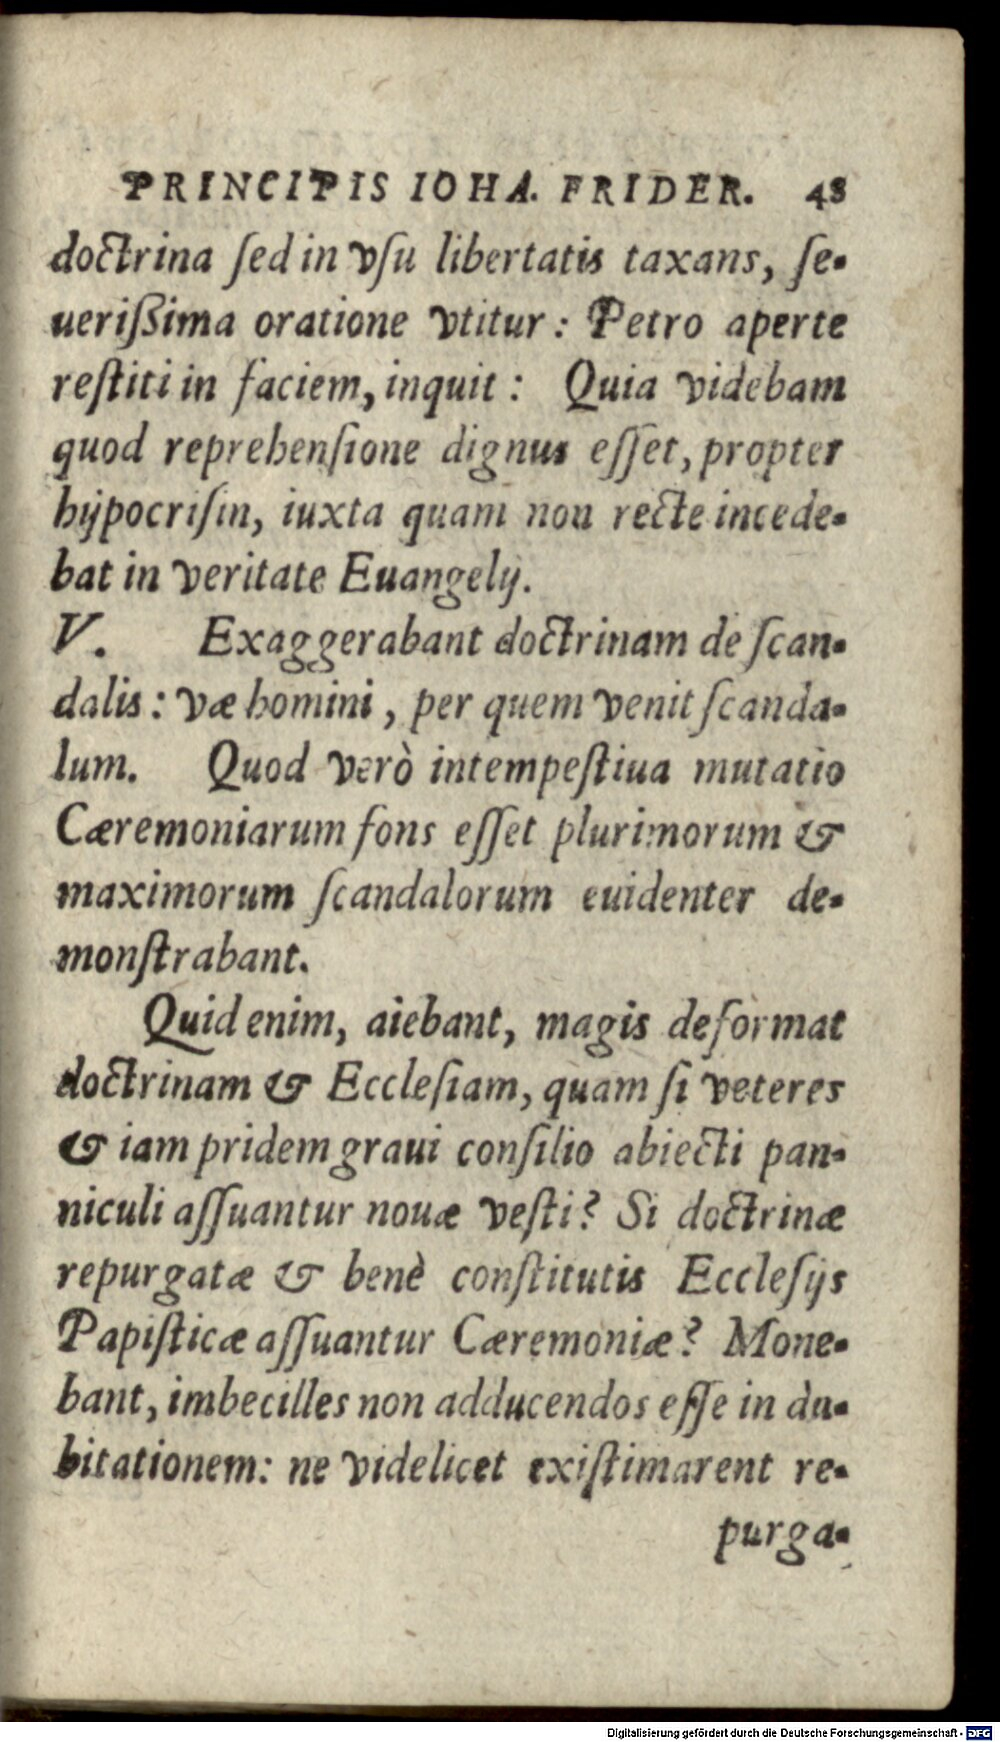 PRINCIPIS IOHA. FRIDER. 48
doctrina ſed in vſu libertatis taxans, ſe-
ueriſſima oratione vtitur: Petro aperte
reſtiti in faciem, inquit: Quia videbam
quod reprehenſione dignus eſſet, propter
hÿpocriſin, iuxta quam non recte incede-
bat in veritate Euangelij.
V. Exaggerabant doctrinam de ſcan-
dalis: væ homini, per quem venit ſcanda-
lum. Quod verò intempeſtiua mutatio
Cæremoniarum fons eſſet plurimorum &
maximorum ſcandalorum euidenter de-
monſtrabant.
Quid enim, aiebant, magis deformat
doctrinam & Eccleſiam, quam ſi veteres
& iam pridem graui conſilio abiecti pan-
niculi aſſuantur nouæ veſti? Si doctrinæ
repurgatæ & benè conſtitutis Eccleſijs
Papiſticæ aſſuantur Cæremoniæ? Mone-
bant, imbecilles non adducendos eſſe in du-
bitationem: ne videlicet exiſtimarent re-
purga-
Digitalisierung gefördert durch die Deutsche Forschungsgemeinschaft - DFG